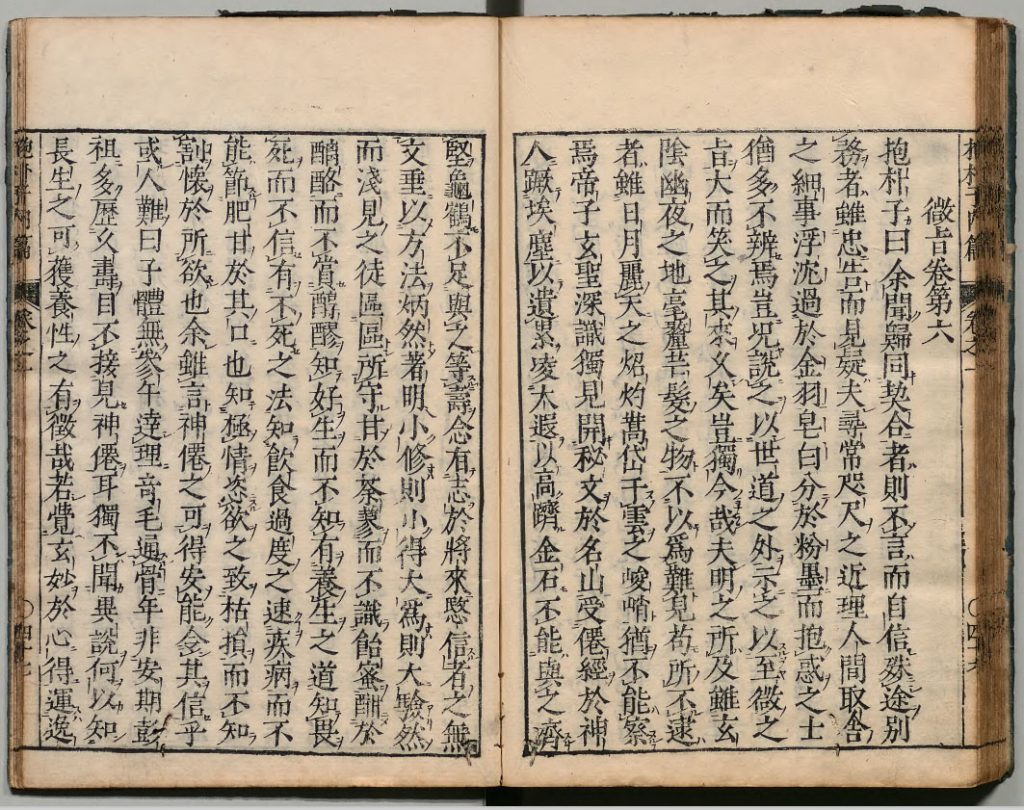 抱朴子內篇 卷之一 ○四十六
微㫖卷第六
抱朴子曰余聞歸同契合者則不言而自信殊途別
務者雖忠告而見疑夫尋常咫尺之近理人間取舍
之細事浮沈過於金羽皂白分於粉墨而抱惑之士
猶多不辨焉豈况說之以世道之外示之以至微之
㫖大而笑之其來乆矣豈獨今哉夫明之所及雖玄
陰幽夜之地毫釐芒髮之物不以爲難見苟所不逮
者雖日月麗天之炤灼嵩岱干雲之峻峭猶不能察
焉帝子玄聖深識獨見開秘文於名山受僊經於神
人蹶埃塵以遺累凌大遐以高隮金石不能與之齊
堅龜鶴不足與之等壽念有志於將來愍信者之無
文垂以方法炳然著明小修則小得大爲則大驗然
而淺見之徒區區所守甘於荼蓼而不識飴蜜酣於
醨酪而不賞醇醪知好生而不知有養生之道知畏
死而不信有不死之法知飲食過度之速疾病而不
能節肥甘於其口也知極情恣欲之致枯損而不知
割懷於所欲也余雖言神僊之可得安能令其信乎
或人難曰子體無參午達理竒毛通骨年非安期彭
祖多歷乆壽目不接見神僊耳獨不聞異說何以知
長生之可獲養性之有徵哉若覺玄妙於心得運逸